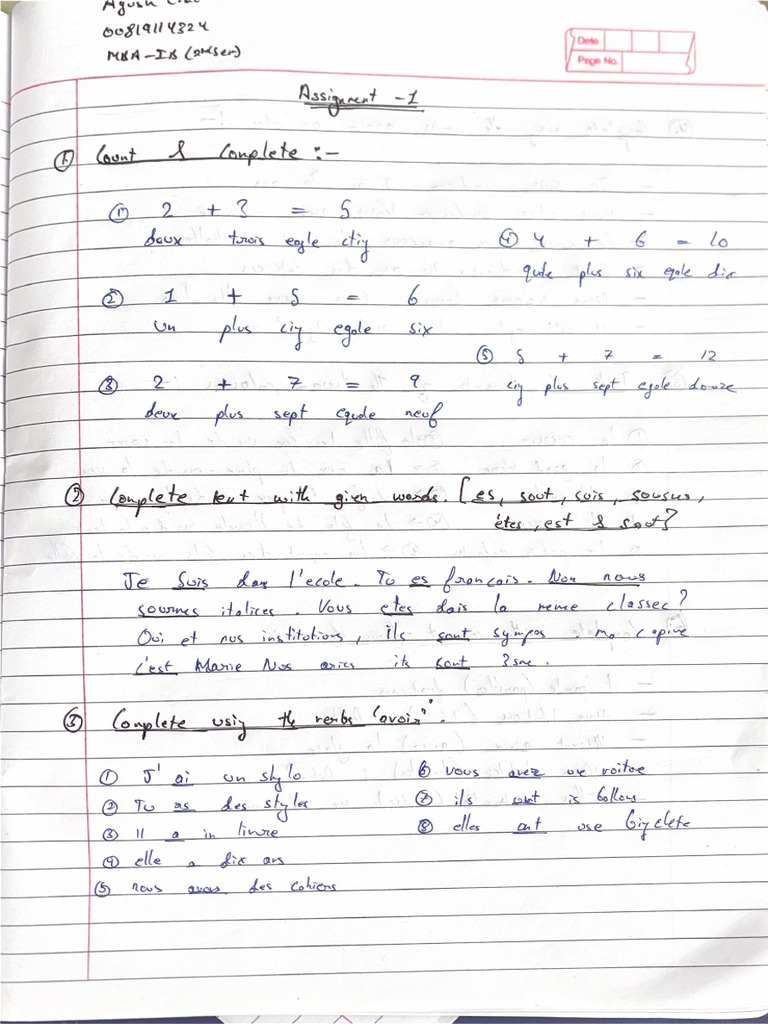 Ayush
00819114324
MBA-IB (2nd Sem)
Date
Page No.
Assignment -1
① Count & Complete :-
① 2 + 3 = 5
deux trois eagle ciy
④ 4 + 6 = 10
qute plus six egale dix
② 1 + 5 = 6
un plus ciy egale six
⑤ 5 + 7 = 12
ciy plus sept egale douze
③ 2 + 7 = 9
deux plus sept equde neuf
② Complete text with given words. [es, sout, suis,
êtes, est & sout?
Je Suis dans l'ecole. Tu es francais. Non nous
sournes italices. Vous etes dais la meme classec?
Oui et nos institutions, ils sont sympos ma
c'est Marie Nos its sont
③ Complete using the verbs "avoir".
① J'ai un stylo
② Tu as des styles
③ Il a in livre
④ elle a dix ans
⑤ nous avons des cahiers
⑥ vous avez use voiture
⑦ ils
⑧ elles ont use bicyclete